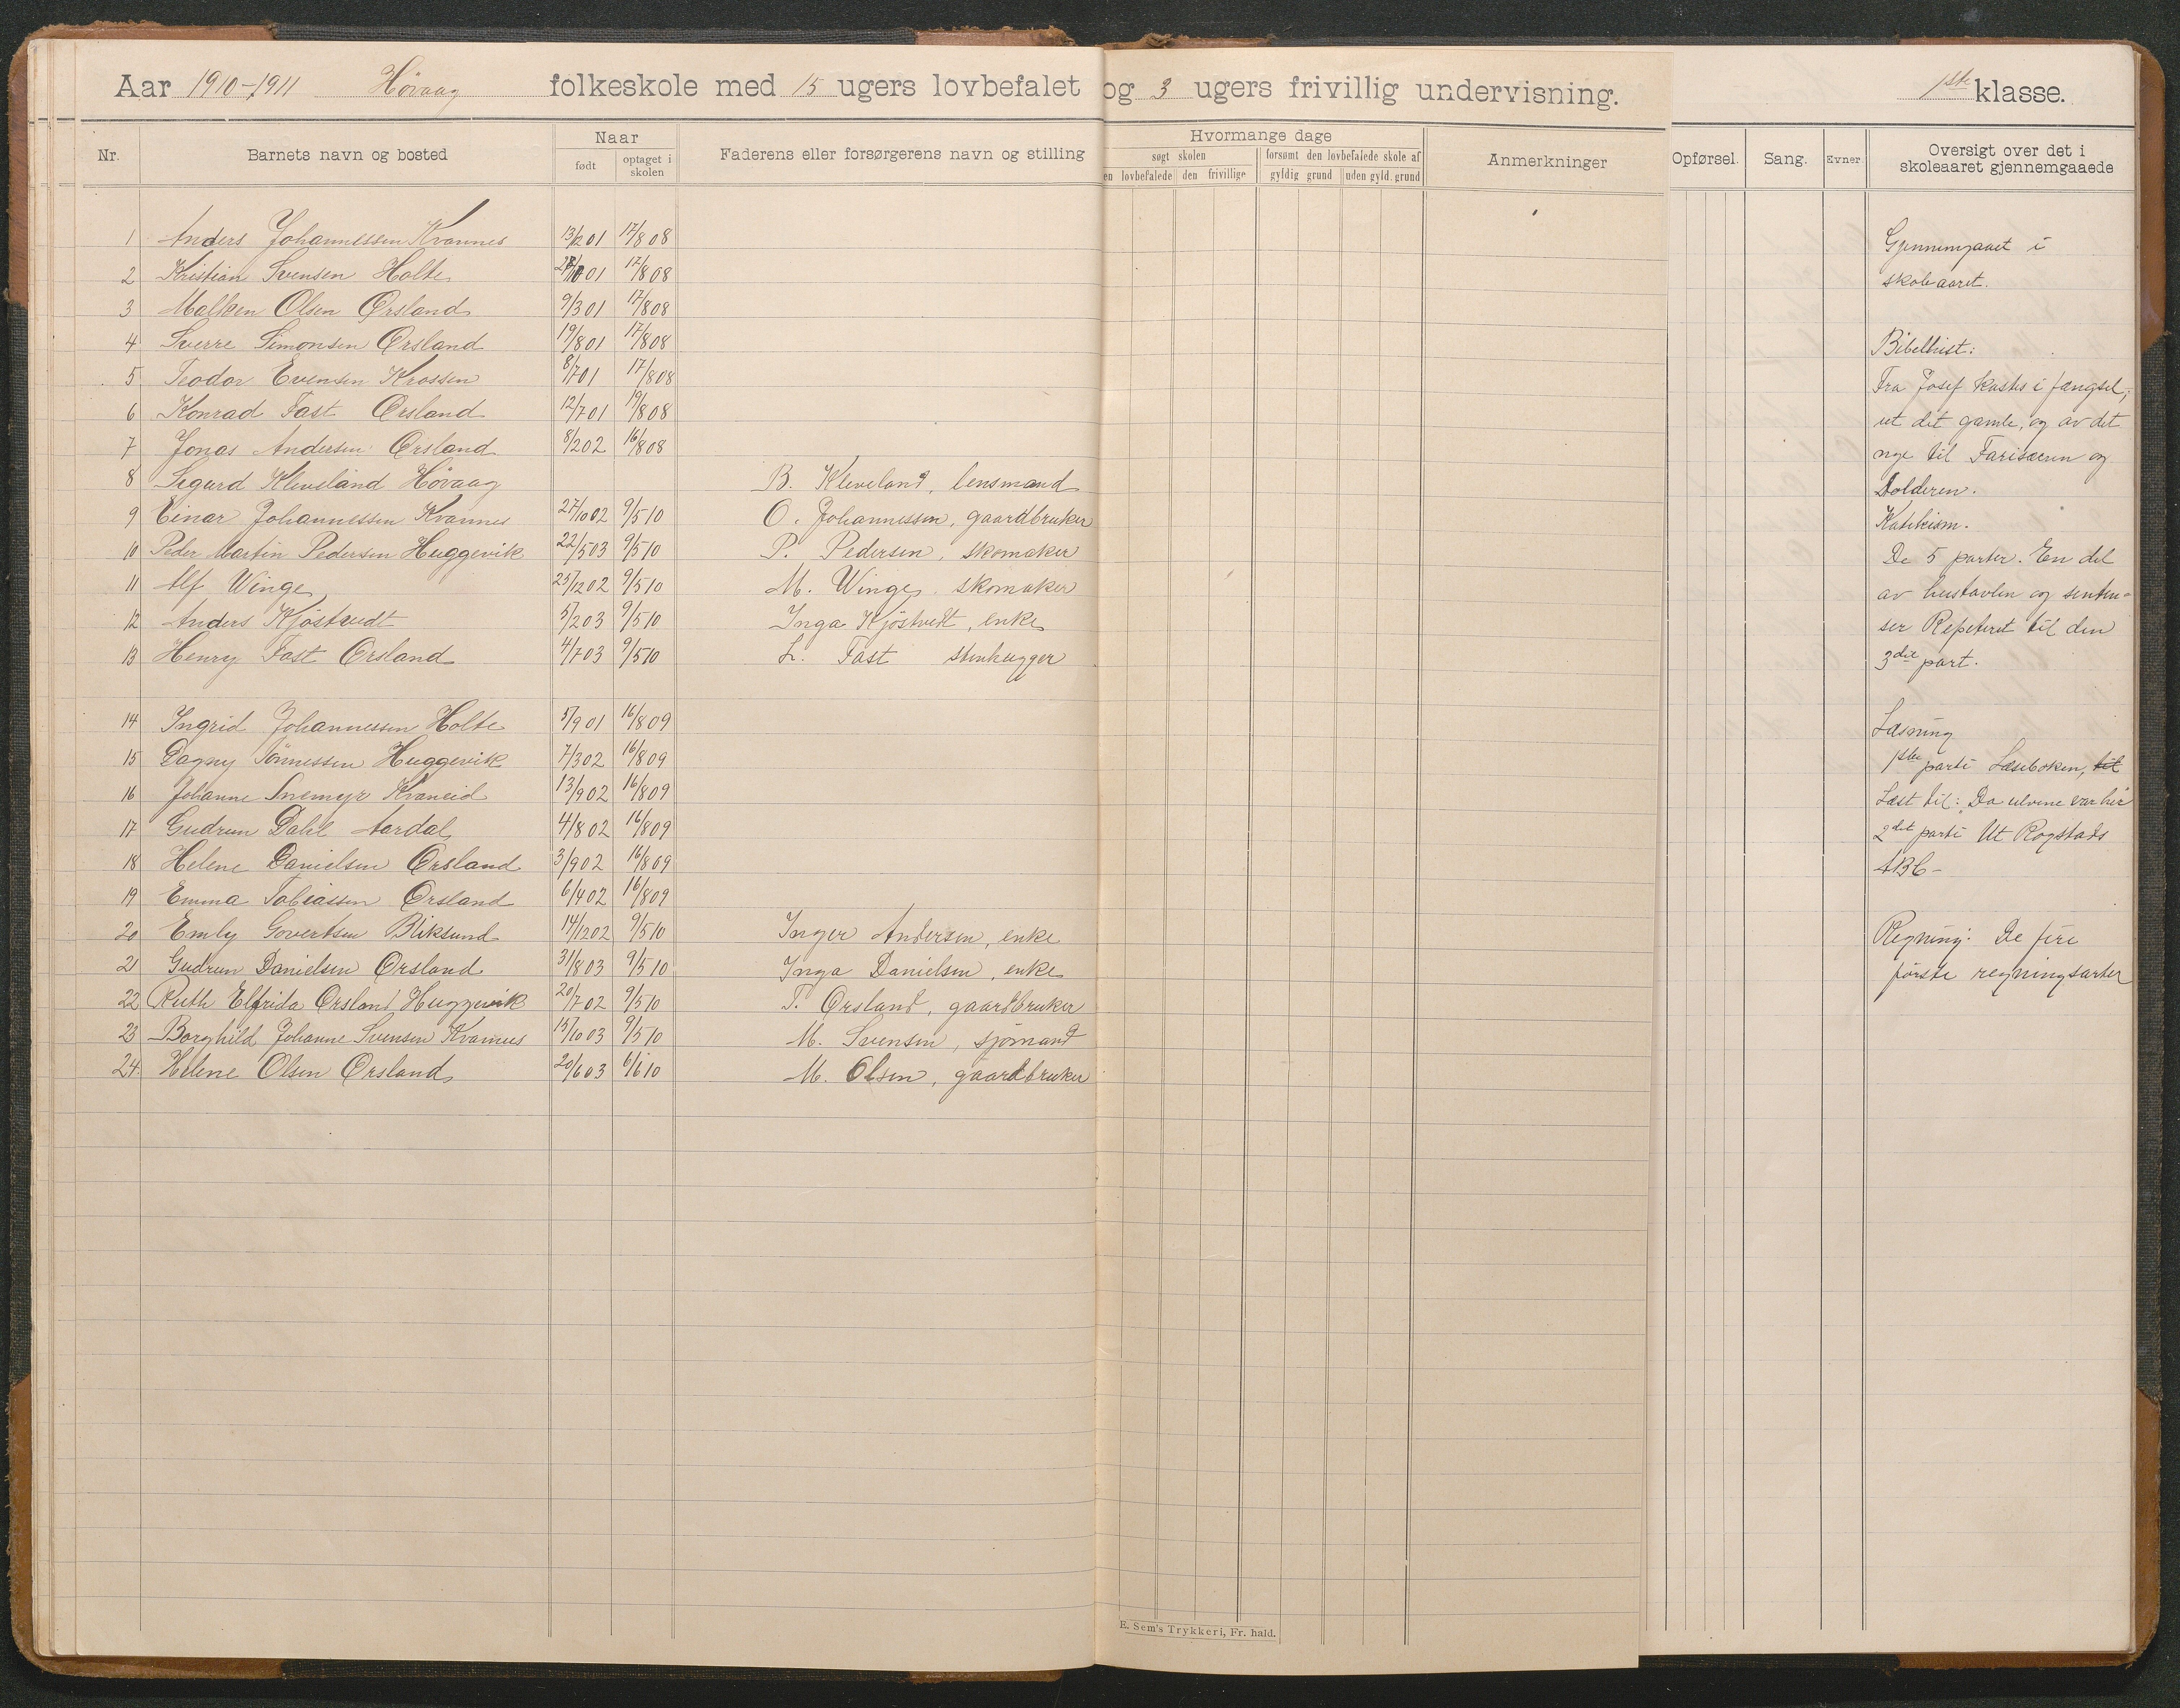 Aar 1910-1911 Høvaag folkeskole med 15 ugers lovbefalet og 3 ugers frivillig undervisning. 1ste klasse.
Nr. Barnets navn og bosted Naar født optaget i skolen Faderens eller forsørgerens navn og stilling Hvormange dage søgt skolen den lovbefalede den frivillige forsømt den lovbefalede skole af gyldig grund uden gyld. grund Anmerkninger Opførsel. Sang. Evner Oversigt over det i skoleaaret gjennemgaaede
1 Anders Johannessen Kvannes 13/2 01 17/8 08
2 Kristian Svensen Holte 01 17/8 08
3 Malken Olsen Ørsland 9/3 01 17/8 08
4 Sverre Simonsen Ørsland 19/8 01 17/8 08
5 Teodor Evensen Krossen 8/7 01 17/8 08
6 Konrad Fast Ørsland 12/7 01 19/8 08
7 Jonas Andersen Ørsland 8/2 02 16/8 08
8 Sigurd Kleveland Høvaag B. Kleveland, lensmand
9 Einar Johannessen Kvannes 27/10 02 9/5 10 O. Johannessen, gaardbruker
10 Peder Martin Pedersen Huggevik 22/5 03 9/5 10 P. Pedersen, skomaker
11 Alf Winge 25/12 02 9/5 10 M. Winge, skomaker
12 Anders Kjöstvedt 5/2 03 9/5 10 Inga Kjöstvedt, enke
13 Henry Fast Ørsland 4/7 03 9/5 10 L. Fast stenhugger
14 Ingrid Johannessen Holte 5/9 01 16/8 09
15 Dagny Tönnessen Huggevik 7/3 02 16/8 09
16 Johanne Snemyr Kvaneid 13/9 02 16/8 09
17 Gudrun Dahl Aardal 4/8 02 16/8 09
18 Helene Danielsen Ørsland 3/9 02 16/8 09
19 Emma Tobiassen Ørsland 6/4 02 16/8 09
20 Emly Govertsen Bliksund 14/12 02 9/5 10 Inger Andersen, enke
21 Gudrun Danielsen Ørsland 31/8 03 9/5 10 Inga Danielsen, enke
22 Ruth Elfrida Ørsland Huggevik 20/7 02 9/5 10 T. Ørsland, gaardbruker
23 Borghild Johanne Svensen Kvannes 15/10 03 9/5 10 M. Svensen, sjömand
24. Helene Olsen Ørsland 20/6 03 6/6 10 M. Olsen, gaardbruker
E. Sem's Trykkeri, Fr. hald.
Gjennemgaaet i
skoleaaret.
Bibelhist:
Fra Josef kastes i fængsel,
ut det gamle, og av det
nye til Farisæeren og
tolderen.
Katekism.
De 5 parter. En del
av hustavlen og senten-
ser Repeteret til den
3die part.
Læsning
1ste parti Læseboken, til
Læst til: Da ulvene var her
2det parti Ut Rogstads
ABC-
Regning: De fire
første regningsarter